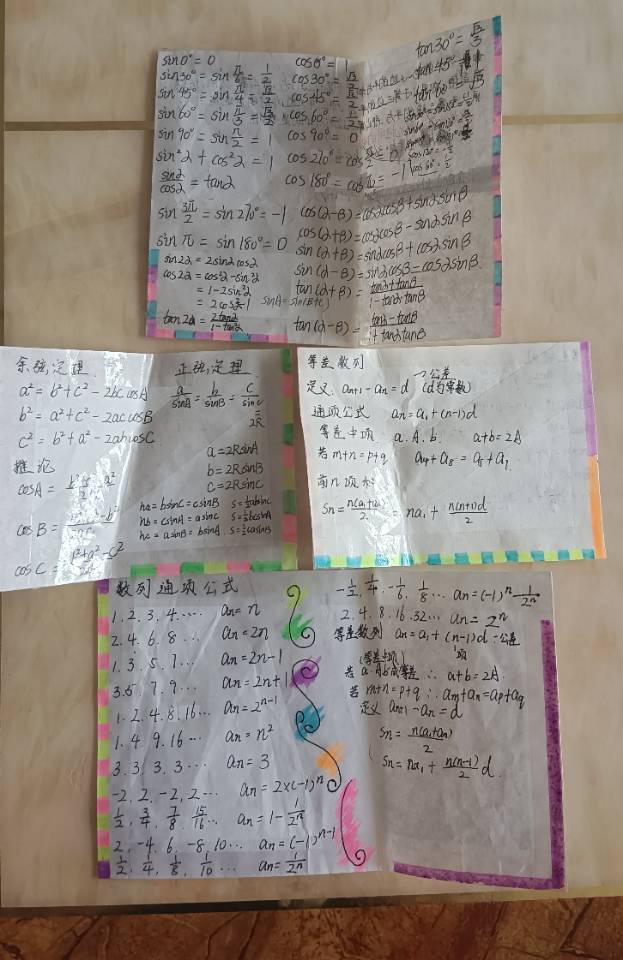 sin0° = 0
sin30° = sin π/6 = 1/2
sin45° = sin π/4 = √2/2
sin60° = sin π/3 = √3/2
sin90° = sin π/2 = 1
sin²2 + cos²2 = 1
sin2/cos2 = tan2
sin 3π/2 = sin270° = -1
sin π = sin180° = 0
sin22 = 2sin2cos2
cos22 = cos²2-sin²2
= 1-2sin²2
= 2cos²2-1 sinA=sin(B+C)
tan22 = 2tan2/1-tan²2
cos0° = 1
cos30° = √3/2
cos45° = √2/2
cos60° = 1/2
cos90° = 0
cos270° = cos 3π/2 = 0
cos180° = cosπ = -1
cos(2-B)=cos2cosB+sin2sinB
cos(2+B)=cos2cosB-sin2sinB
sin(2+B)=sin2cosB+cos2sinB
sin(2-B)=sin2cosB-cos2sinB
tan(2+B)=tan2+tanB/1-tan2tanB
tan(2-B)=tan2-tanB/1+tan2tanB
tan30° = √3/3
tan45° = 1
tan60° = √3
余弦定理
a² = b²+c²-2bc cosA
b² = a²+c²-2ac cosB
c² = b²+a²-2ab cosC
推论
cosA =
cosB =
cosC =
正弦定理
a/sinA = b/sinB = c/sinC
= 2R
a=2RsinA
b=2RsinB
c=2RsinC
ha=bsinC=csinB S=½absinC
hb=csinA=asinC S=½bcsinA
hc=asinB=bsinA S=½casinB
等差数列
定义. an+1-an=d (d为常数) →公差
通项公式 an=a1+(n-1)d
等差中项 a.A.b. a+b=2A
若m+n=p+q
前n项和:
Sn=n(a1+an)/2 = na1+n(n-1)d/2
数列通项公式
1.2.3.4.... an=n
2.4.6.8... an=2n
1.3.5.7... an=2n-1
3.5.7.9... an=2n+1
1.2.4.8.16... an=2ⁿ⁻¹
1.4.9.16... an=n²
3.3.3.3... an=3
-2.2.-2.2... an=2×(-1)ⁿ
1/2.3/4.7/8.15/16... an=1-1/2ⁿ
2.-4.6.-8.10... an=(-1)ⁿ⁻¹
1/2.1/4.1/8.1/10... an=1/2ⁿ
-1/2.1/4.-1/6.1/8... an=(-1)ⁿ 1/2ⁿ
2.4.8.16.32... an=2ⁿ
等差数列 an=a1+(n-1)d-公差
项
(等差中项)
若a.A.b成等差∴a+b=2A
若m+n=p+q∴am+an=ap+aq
定义an+1-an=d
Sn=n(a1+an)/2
Sn=na1+n(n-1)/2 d